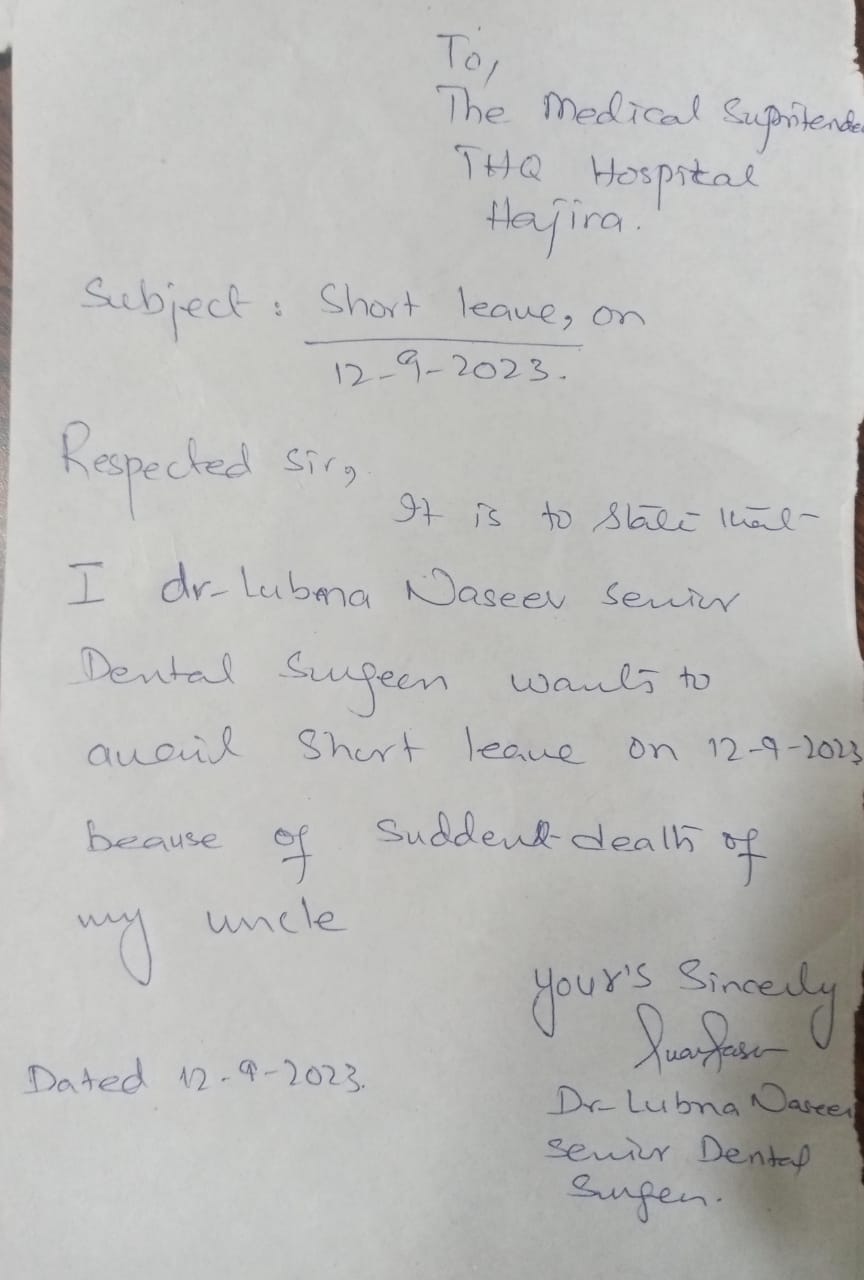 To,
The Medical Supritende
THQ Hospital
Hajira.
Subject : Short leave, on
12-9-2023.
Respected Sir,
It is to state that
I dr- Lubna Naseer senior
Dental Surgeen wants to
avail Short leave on 12-9-2023
beause of Sudden death of
my uncle
your's Sincerly
Dr- Lubna Naseer
Dated 12-9-2023.
Senior Dental
Surgen.